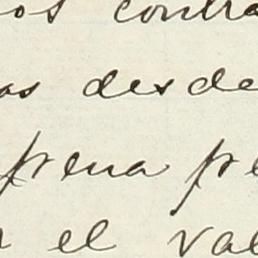 os contra
as desde
pena pe
el val